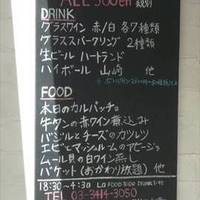 ALL 500en 税別
DRINK
グラスワイン 赤/白 各7種類
グラススパークリング 2種類
生ビール ハートランド
ハイボール 山崎 他
FOOD
本日のカルパッチョ
牛タンの赤ワイン煮込み
バジルとチーズのカツレツ
エビとマッシュルームのアヒージョ
ムール貝の白ワイン蒸し
バケット(おかわり放題) 他
18:30~4:30 LO FOOD 3:00 DRINK
TEL 03-3414-3050